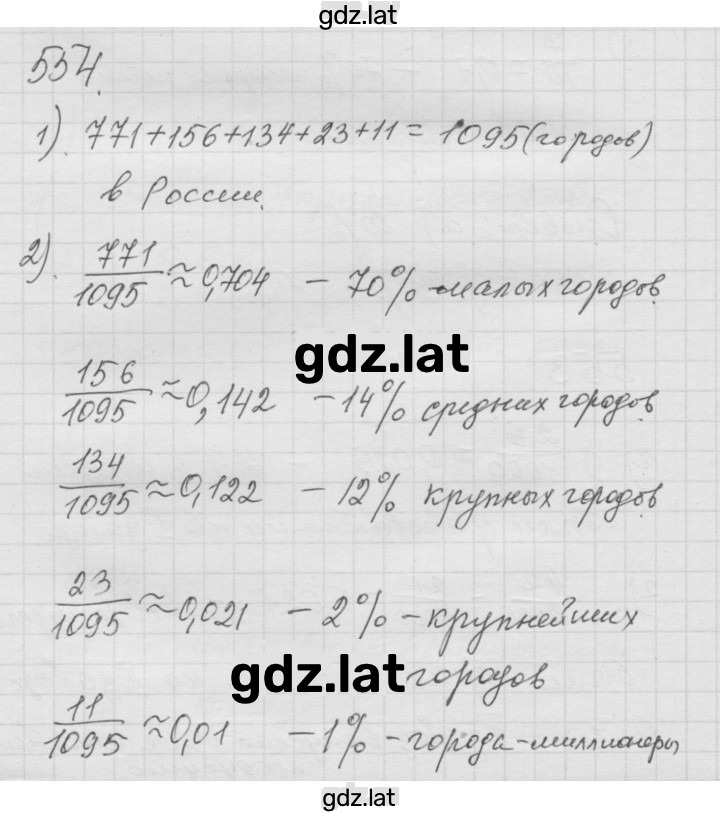 gdz.lat
554.
1). 771+156+134+23+11 = 1095 (городов)
в России.
2). 771/1095 ≈ 0,704 – 70% – малых городов.
gdz.lat
156/1095 ≈ 0,142 – 14% средних городов.
134/1095 ≈ 0,122 – 12% крупных городов.
23/1095 ≈ 0,021 – 2% – крупнейших
gdz.lat городов
11/1095 ≈ 0,01 – 1% – города-миллионеры
gdz.lat